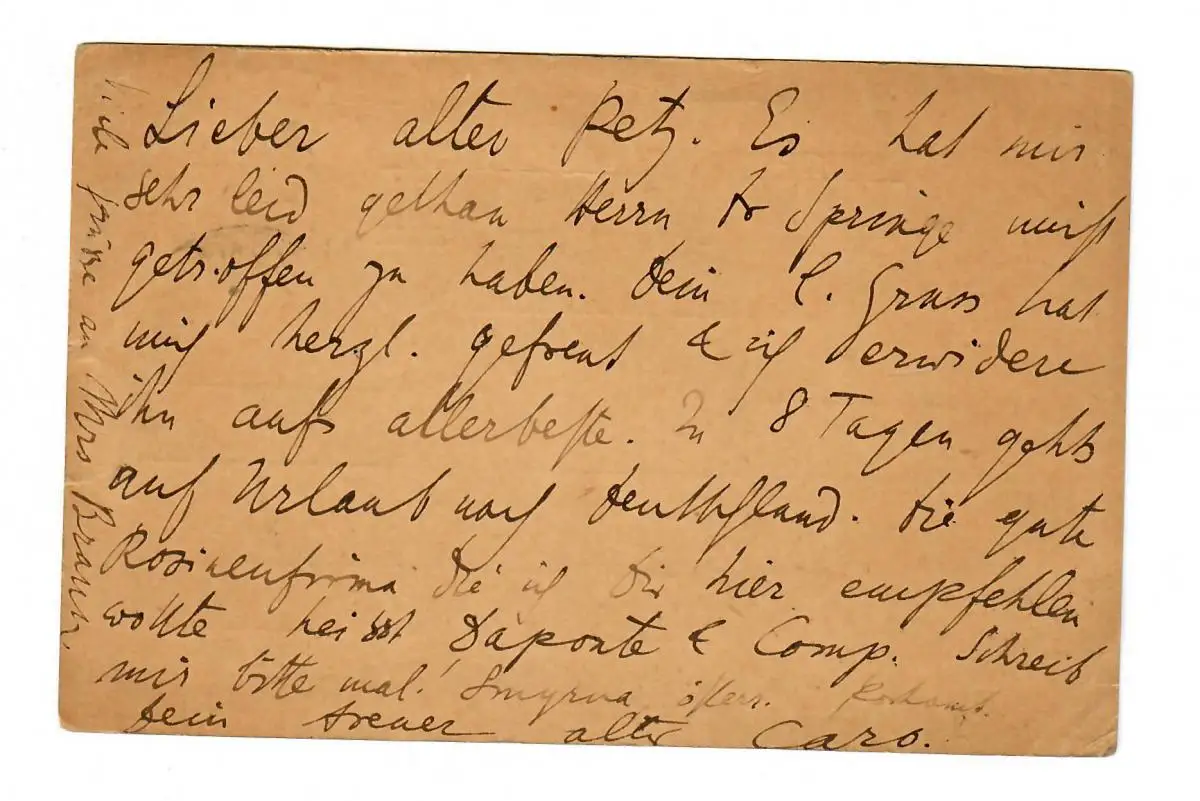 Lieber alter Petz. Es hat mir
sehr leid gethan Herrn Dr Springe nicht
getroffen zu haben. Dein l. Gruss hat
mich herzl. gefreut & ich erwidere
ihn aufs allerbeste. In 8 Tagen gehts
auf Urlaub nach Deutschland. Die gute
Rosinenfirma die ich Dir hier empfehlen
wollte heisst Daponte & Comp. Schreib
mir bitte mal! Smyrna österr. Postamt.
Dein treuer alter Caro.
Viele Grüsse an Mrs Braun.